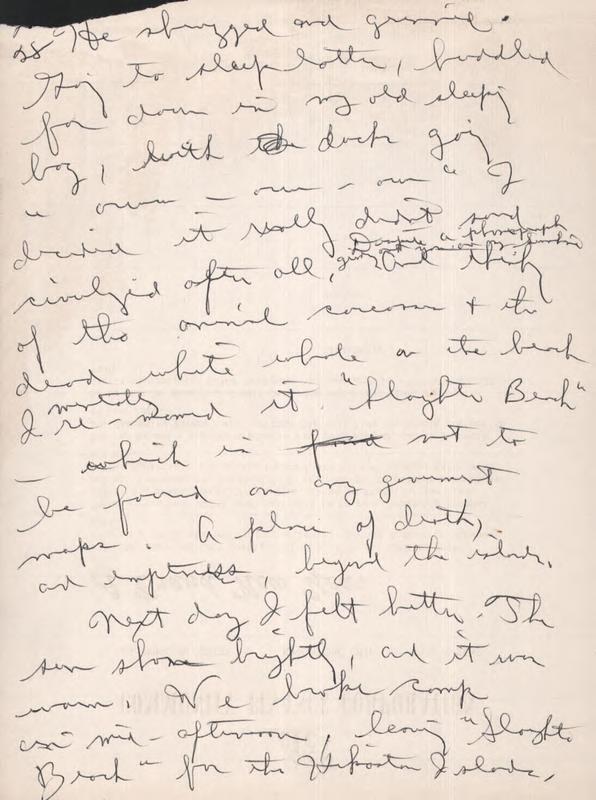 28 He shrugged and grinned.
Going to sleep later, huddled
far down in my old sleeping
bag, with the ducks going
"ouou – ouu – ouu" I
decided it really didn't sound
Despite a phonograph
civilized after all, And thinking
of the animal carcasses & the
dead white whale on the beach
I mentally re-named it "Slaughter Beach"
– which is found not to
be found on any government
maps. A place of death,
and emptiness, beyond the islands.
Next day I felt better. The
sun shone brightly, and it was
warm. We broke camp
mid-afternoon, leaving "Slaughter
Beach" for the Islands,